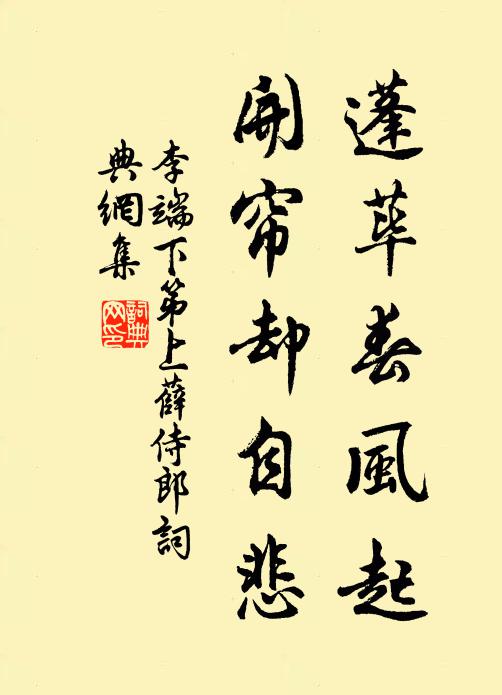 蓬蓽春風起
開帘却自悲
李端下第上薛侍郎詞
典網集
詞典網印